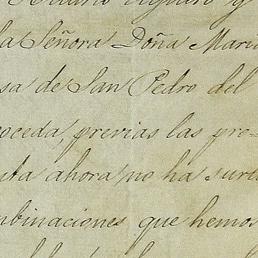 y
la Señora Doña Mari
sa de San Pedro del
oceda, previas las pre-
ta ahora no ha surt
mbinaciones que hemos